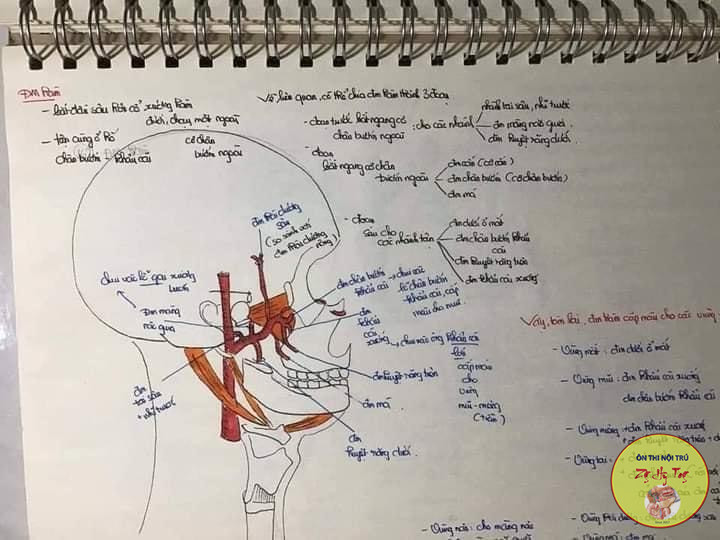 ĐM hàm
- bắt đầu sau lồi cầu xương hàm
dưới, chạy mặt ngoài
cơ chân
bướm ngoài
- tận cùng ở hố
chân bướm khẩu cái
Về liên quan, có thể chia đm hàm thành 3 đoạn
- đoạn trước bắt ngang cơ
chân bướm ngoài
: cho các nhánh
nhánh tai sâu, nhĩ trước
đm màng não giữa
đm huyệt răng dưới
- đoạn
bắt ngang cơ chân
bướm ngoài
đm cắn (cơ cắn)
đm chân bướm (cơ chân bướm)
đm má
- đoạn
sau cho
các nhánh tận
đm dưới ổ mắt
đm chân bướm khẩu
cái
đm huyệt răng trên
đm khẩu cái xuống
đm thái dương
sâu
(so sánh với
đm thái dương
nông)
chui vào lỗ gai xương
bướm
Đm màng
não giữa
đm
tai sâu
+ nhĩ trước
đm chân bướm
khẩu cái
→ chui vào
lỗ chân bướm
khẩu cái, cấp
máu cho mũi
đm
khẩu
cái
xuống
→ chui vào ống khẩu cái
lớn
cấp máu
cho
vùng
mũi - màng
(hầu)
đm huyệt răng trên
đm má
đm
huyệt răng dưới
Vậy, tóm lại, đm hàm cấp máu cho các vùng
- Vùng mắt: đm dưới ổ mắt
- Vùng mũi: đm khẩu cái xuống
đm chân bướm khẩu cái
- Vùng màng: đm khẩu cái xuống
- Vùng tai:
- Vùng não: cho màng não
- Vùng má: đm má
ÔN THI NỘI TRÚ